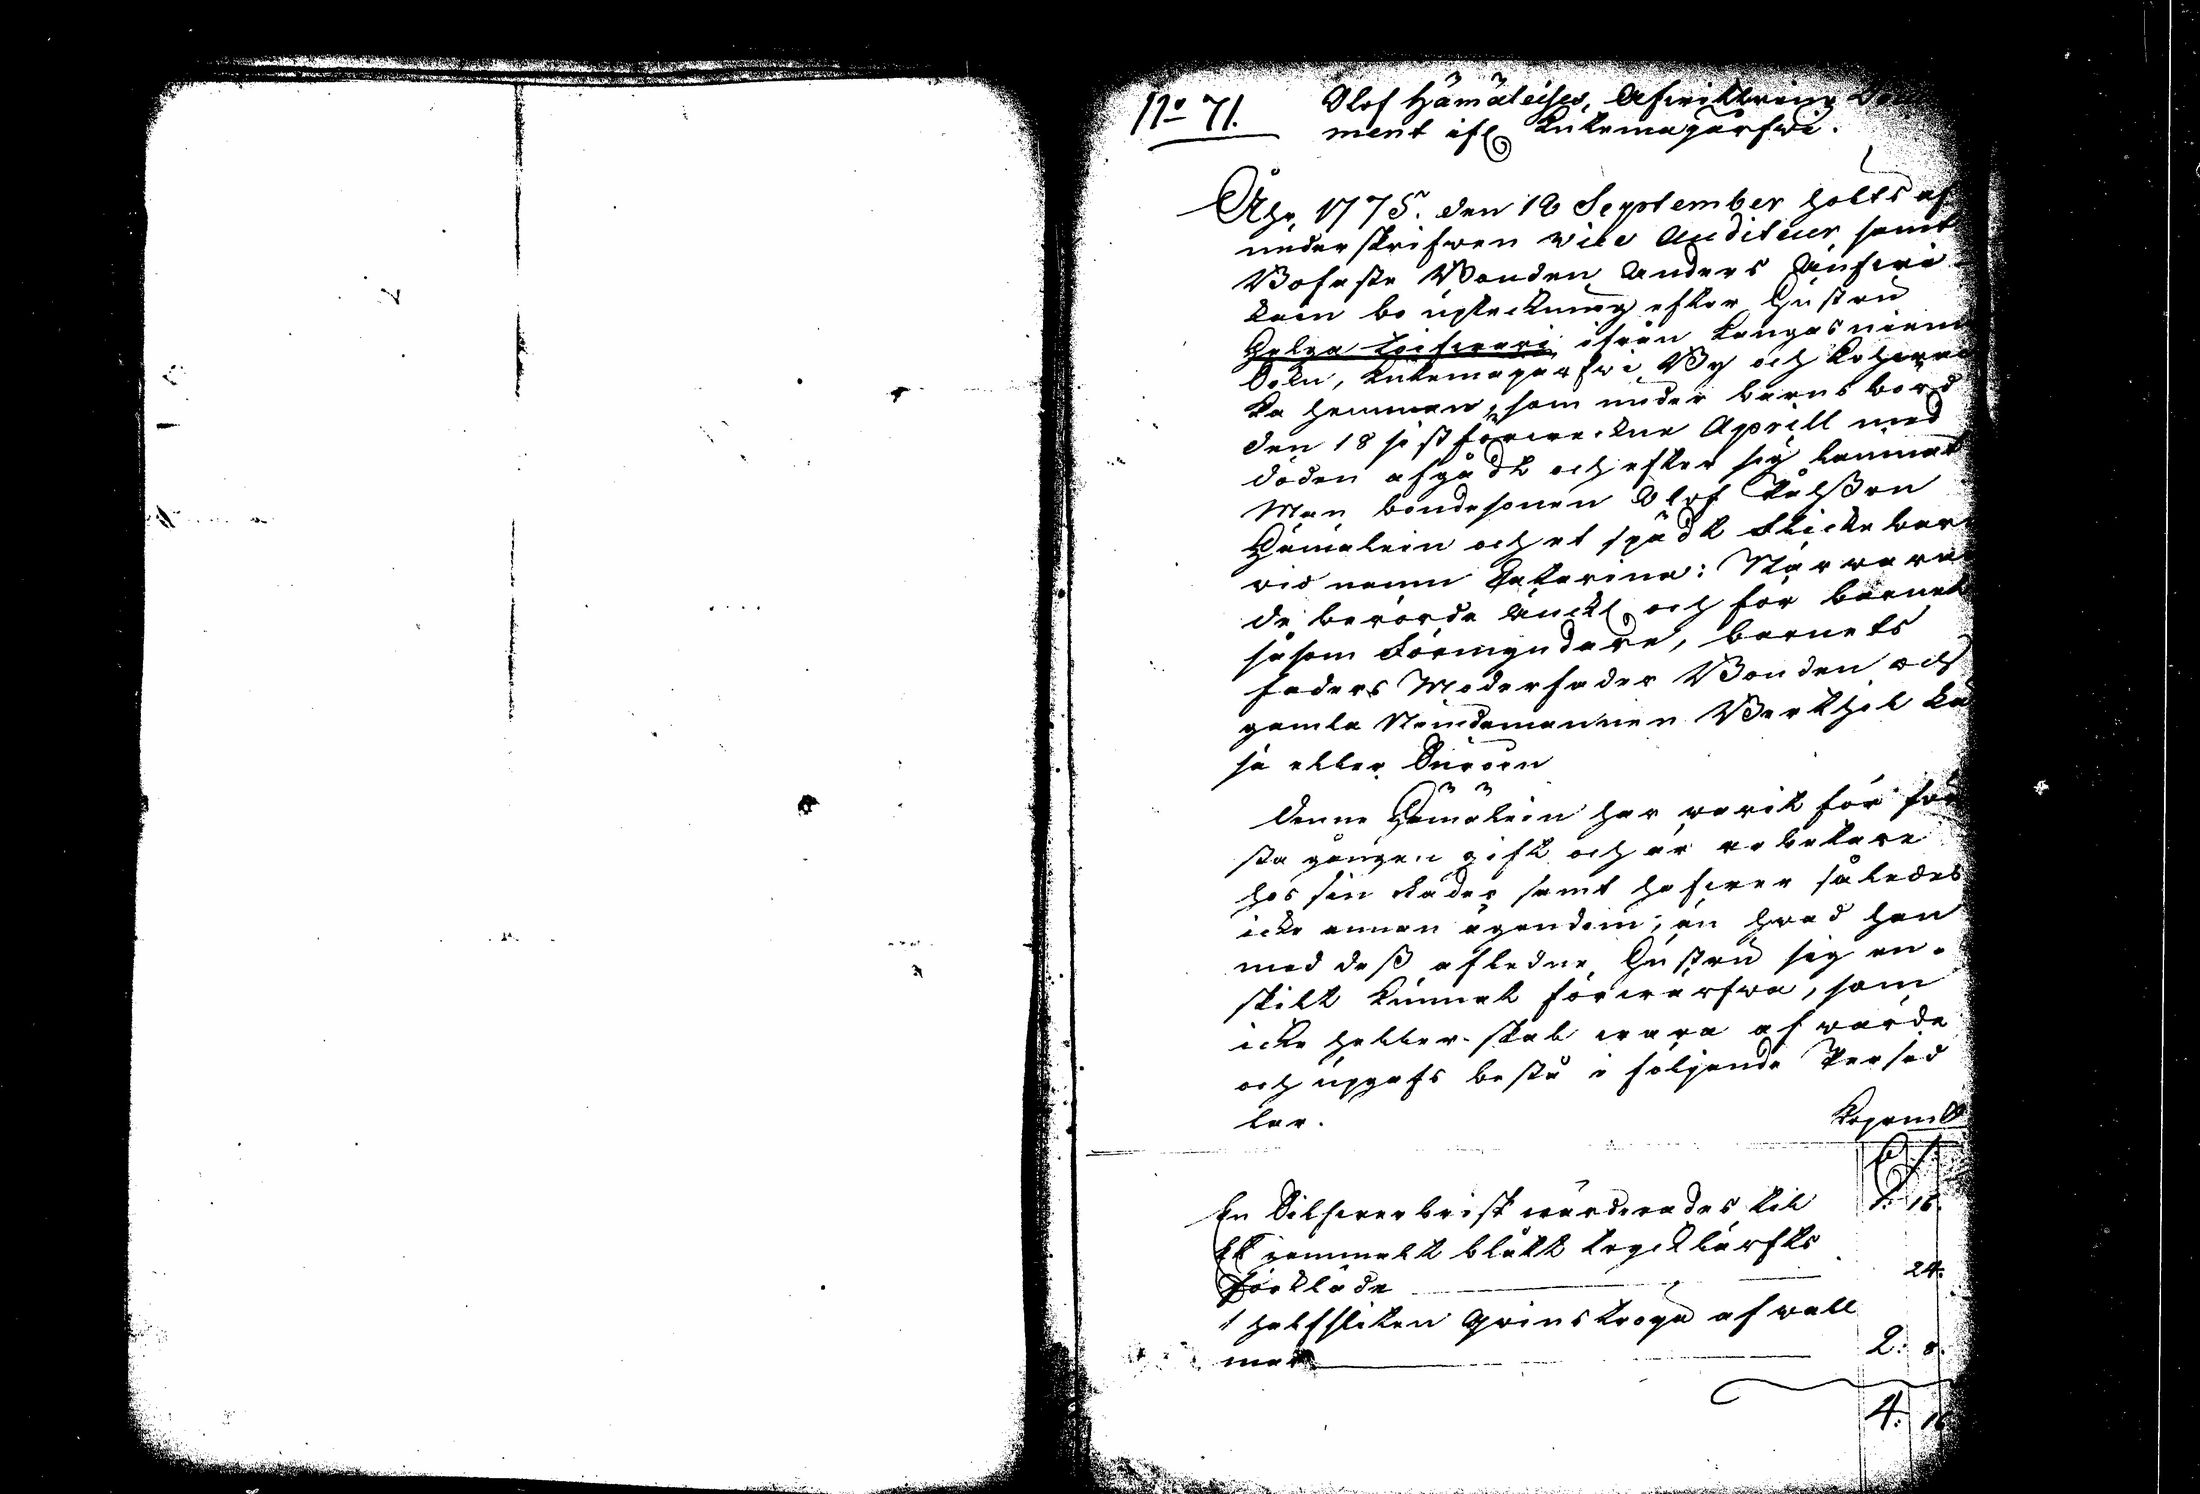 No 71. Olof Hämäleises, Afwittrings
ment ifr Kukemajärfwi.
Åhr 1775. den 18 September holts af
underskrifwen vice Auditeur samt
Bofaste Bonden Anders
kain bo upteckning efter Hustru
Helga ifrån Kangasniemi
Sokn, Kukemajärfwi By och
ka hemman, som under barns börd
den 18 sistförwekne Aprill med
döden afgådt och efter sig lämnat
Man bondesonen Olof Pålsson
Hämälein och et spädt Flickebar
vid namn Catarina: Närwaran
de berörde Änckl. och för barnet
såsom Förmyndare, barnets
faders Moderfader Bonden och
gamla Nämdemannen Berthil
sa eller
Denne Hämälein har warit för för
sta gången gift och är arbetare
hos sin Fader samt hafwer således
icke annan ägendom, än hwad han
med dess afledne Hustru sig en-
skilt kunnat förwärfwa, som
icke heller skal wara af wärde
och upgafs bestå i följande Persed
lar. Koparm
En Silfwerbrisk wärderades til 1: 16.
Ett gammalt blått lärfts
Förkläde 24.
1 halfsliten af wall
mar 2: 8.
4: 16